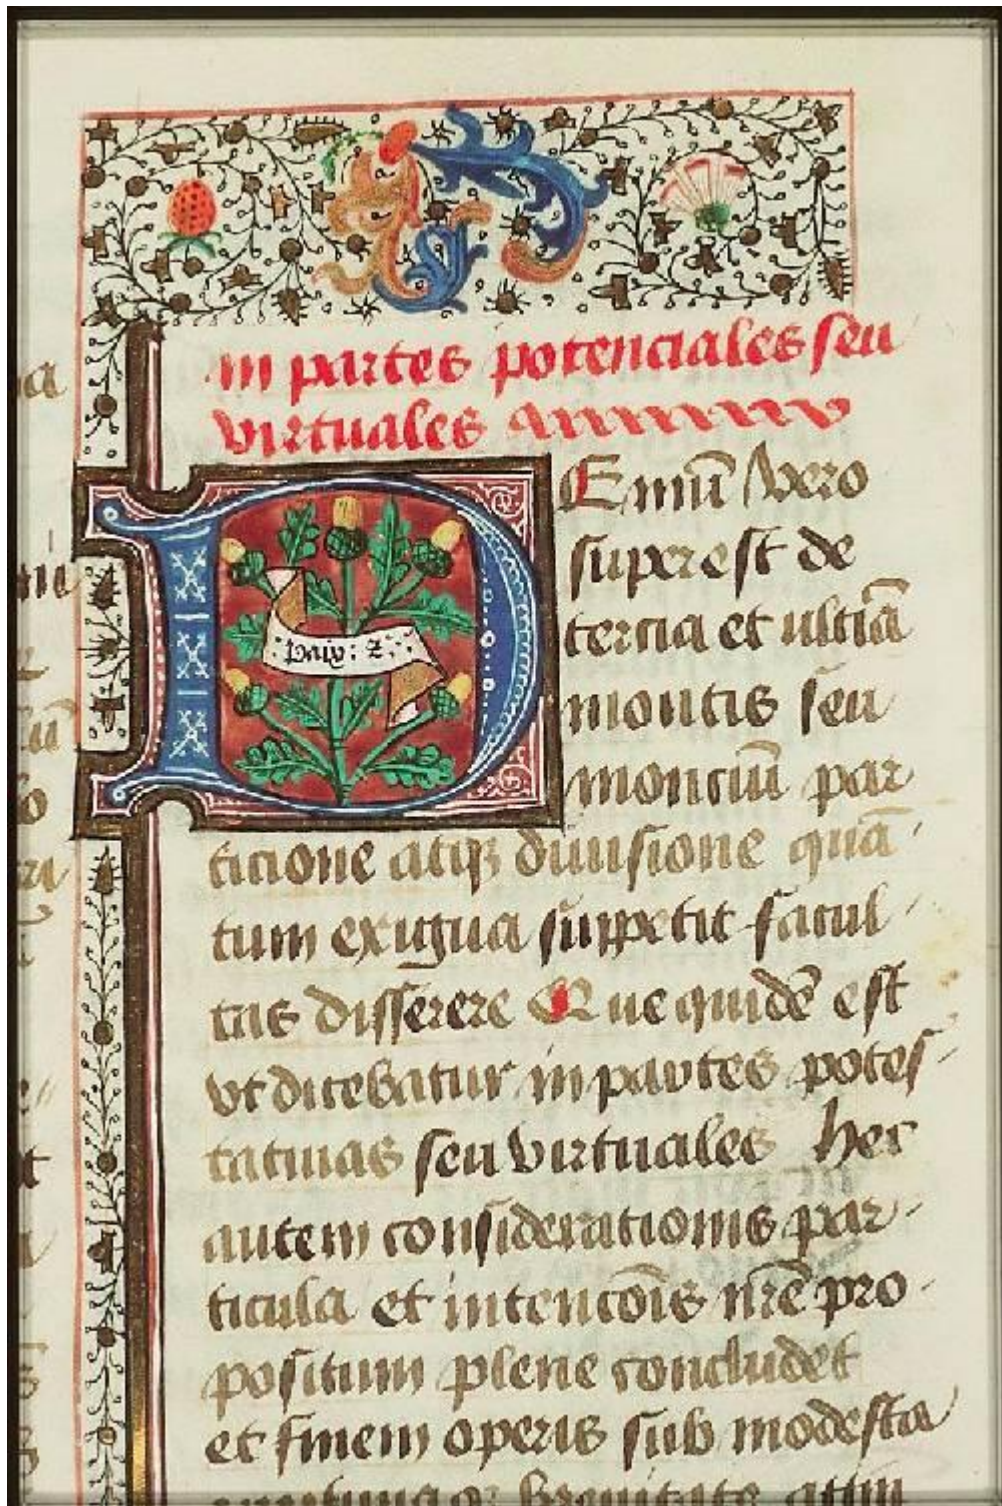 in partes potenciales seu
virtuales
DEmū vero
superest de
tercia et ultīa
montis seu
monciū par
ticione atqꝫ diuisione quā
tum exigua suppetit facul
tas disserere Que quidē est
vt dicebatur in partes potes
tatiuas seu virtuales hec
autem consideracionis par
ticula et intencōis nr̄e pro
positum plene concludet
et finem operis sub modesta
breuitate attin
paix: 2